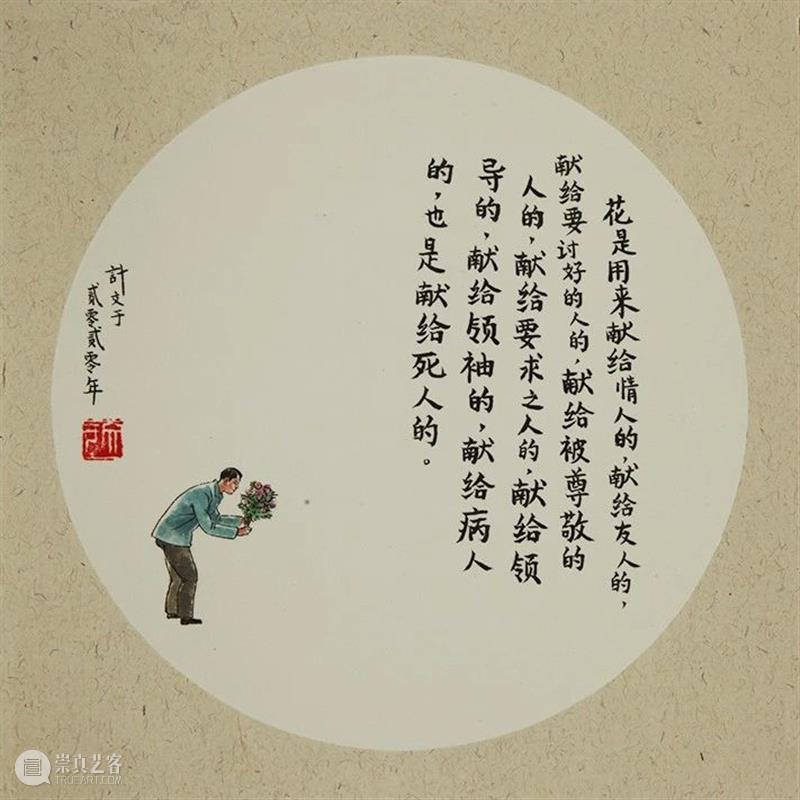 花是用来献给情人的，献给友人的，
献给要讨好的人的，献给被尊敬的
人的，献给要求之人的，献给领
导的，献给领袖的，献给病人
的，也是献给死人的。
計文于
貳零貳零年
崇真艺客
TRUEART.COM